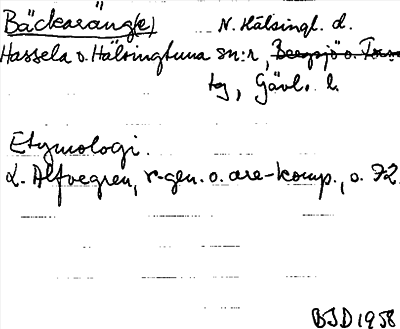 Bäckaräng(e) N. Hälsingl. d.
Hassela o. Hälsingtuna sn:r, Bergsjö o. Torsa
tg, Gävl. l.
Etymologi.
L. Alfvegren, r-gen. o. are-komp., s. 72.
BJD 1958